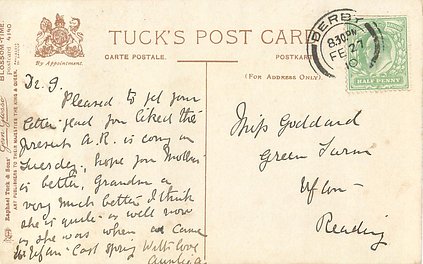 TUCK'S POST CARD
CARTE POSTALE.
POSTKARTE
By Appointment.
(FOR ADDRESS ONLY)
BLOSSOM-TIME.
Postcard 4140
Raphael Tuck & Sons'
ART PUBLISHERS TO THEIR MAJESTIES THE KING & QUEEN.
DERBY
8.30PM
FE 27
10
HALF PENNY
Pleased to get your
letter glad you liked the
present A.R. is coming on
Tuesday, hope you Mother
is better, Grandma is
very much better I think
she is quite as well now
as she was when I came
to Ufton last spring With love
Auntie A.
Miss Goddard
Green Farm
Ufton
Reading